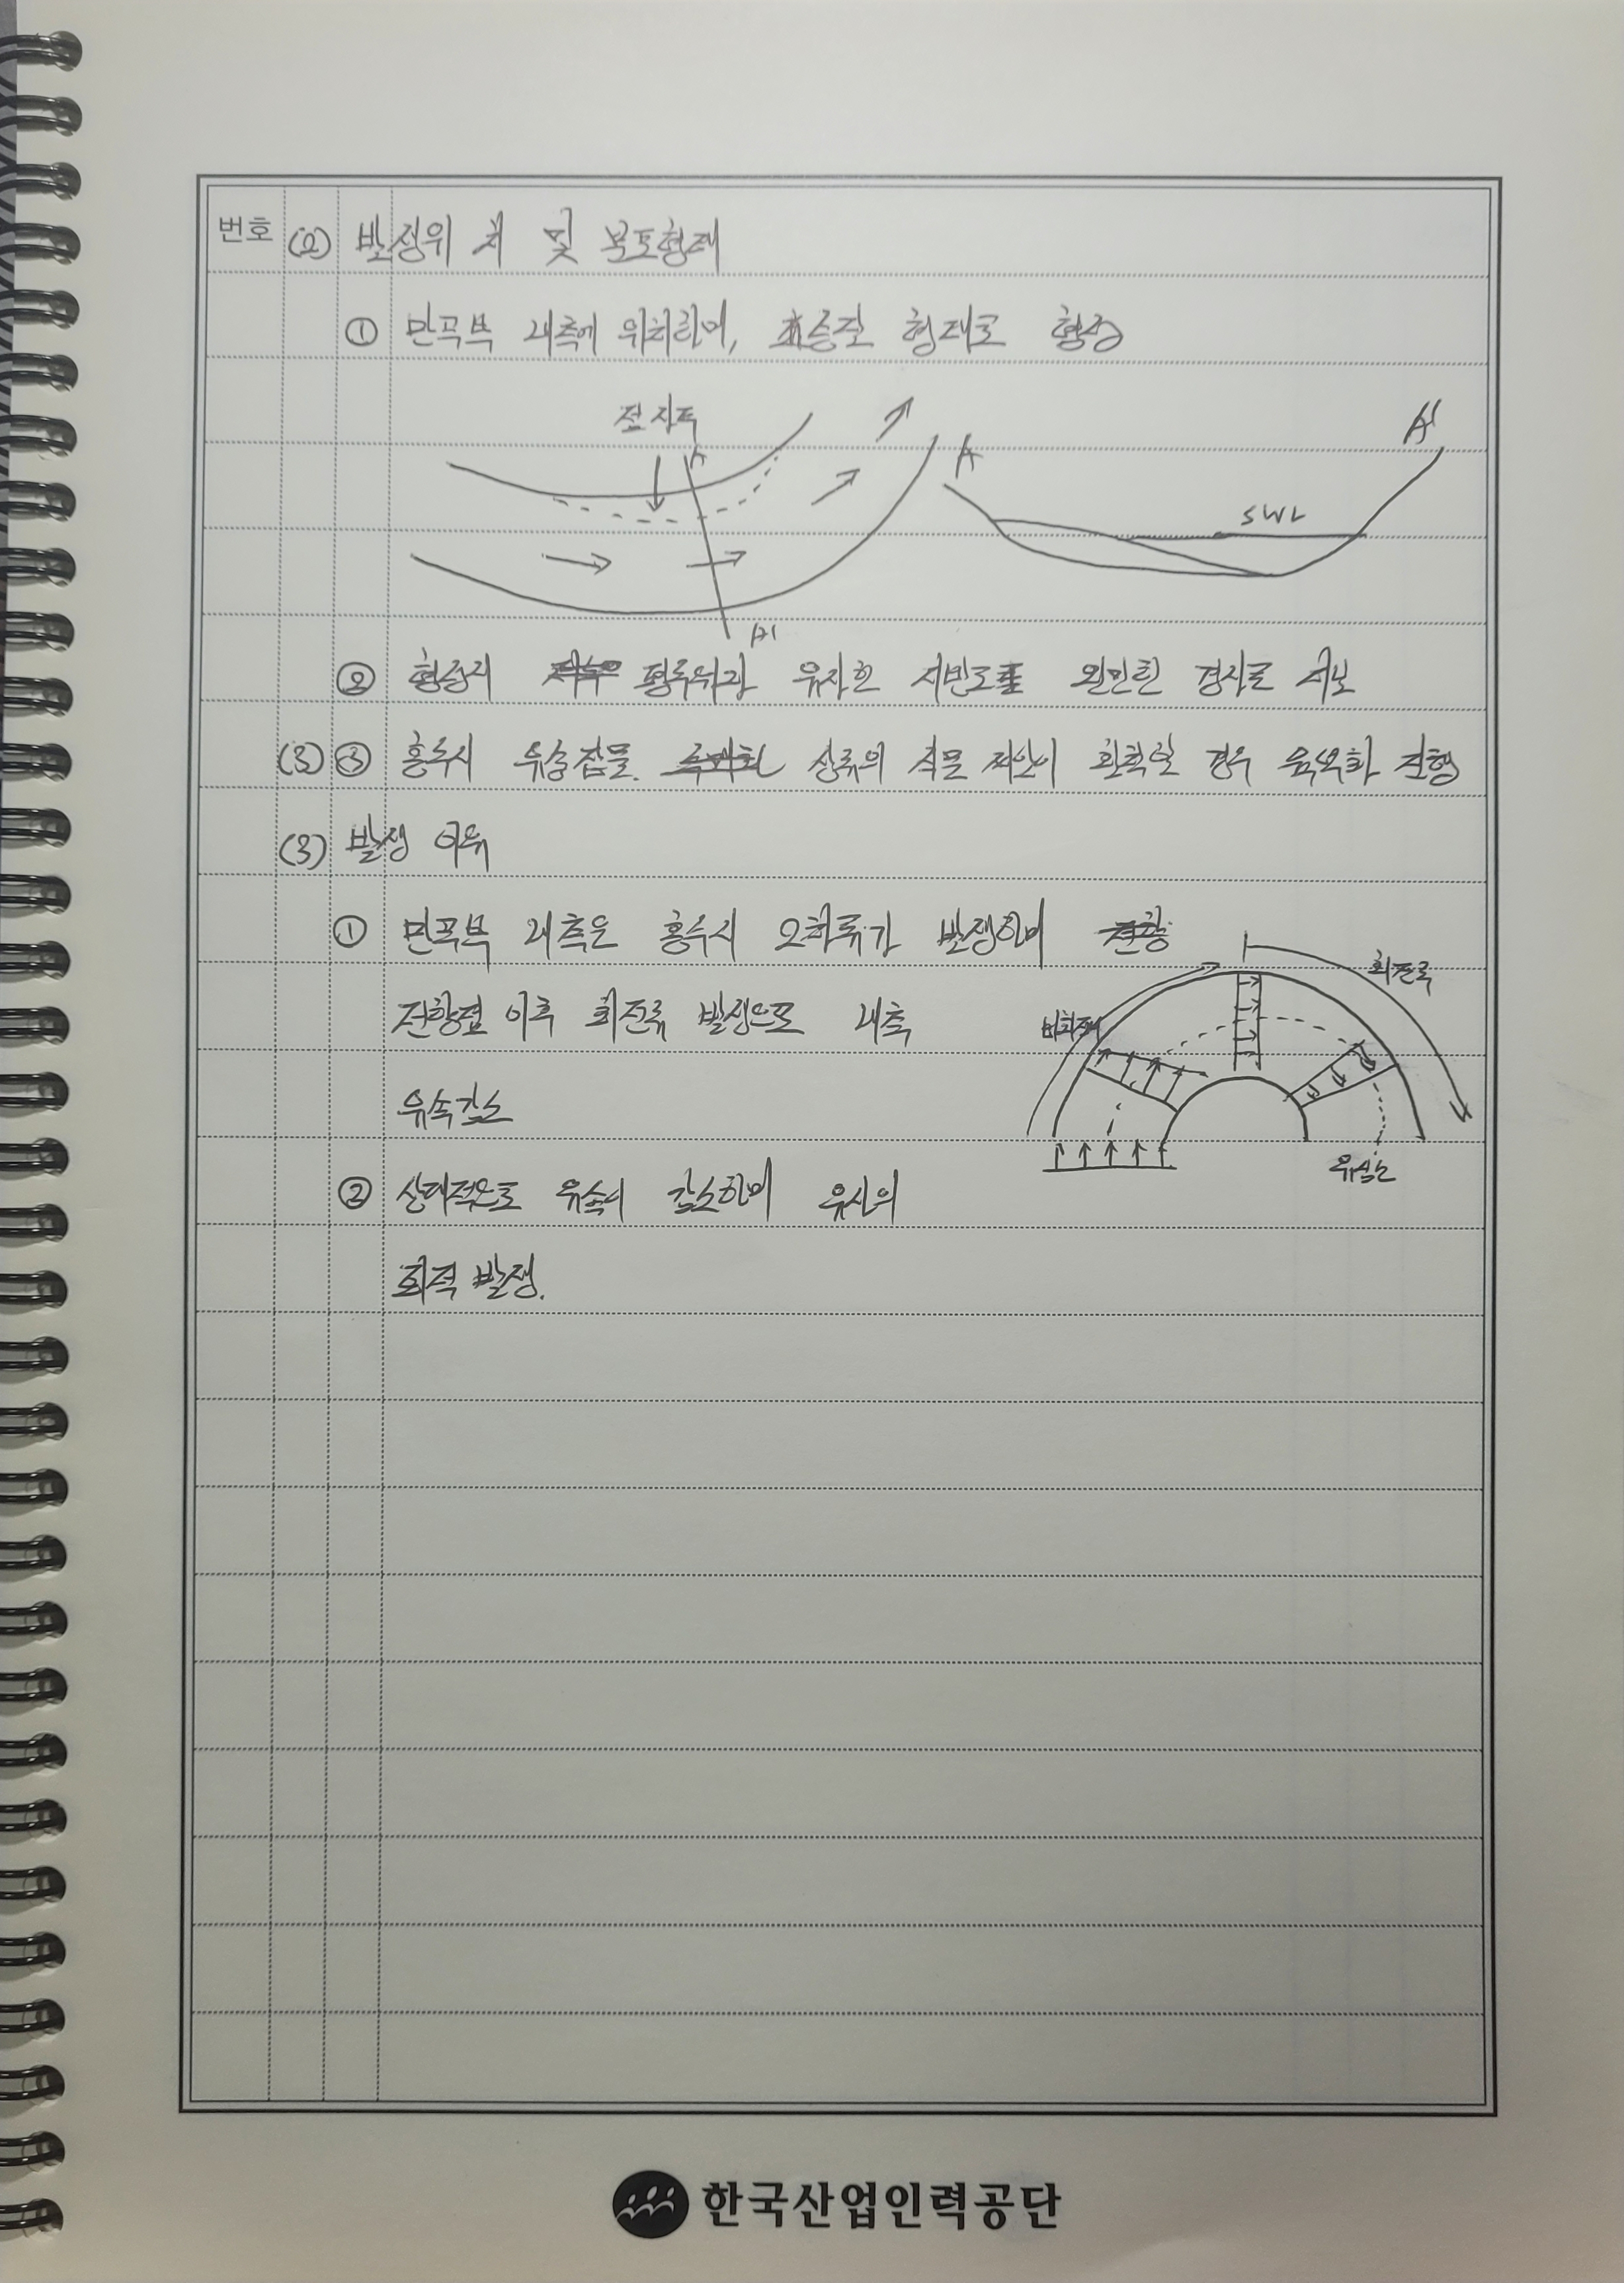 번호 (2) 발생위치 및 분포형태
① 만곡부 내측에 위치하며, 초승달 형태로 형성
점사주
A
A'
A
A'
SWL
② 평류위와 유사한 완만한 경사로
(3) ③ 홍수시 유송잡물 상류의 식물 경우 육역화 진행
(3) 발생 이유
① 만곡부 내측은 홍수시 발생하며
전향점 이후 회전류 발생으로 내측
유속감소
회전류
비회전류
유심선
② 상대적으로 유속이 감소하며 유사의
퇴적 발생.
한국산업인력공단